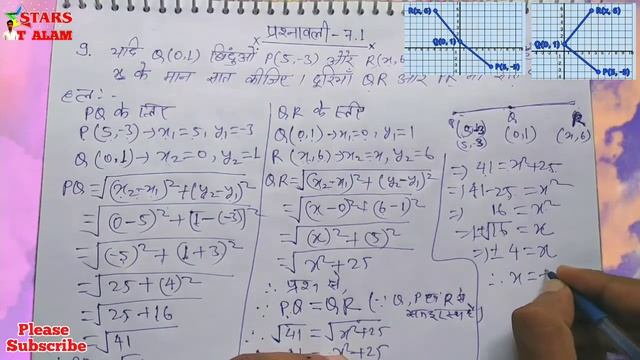 STARS
T ALAM
प्रश्नावली - 7.1
9. यदि Q(0,1) बिंदुओं P(5,-3) और R(x,6)
x के मान ज्ञात कीजिए। दूरियाँ QR और PR भी
हल:-
R(x, 6)
Q(0, 1)
P(5, -3)
R(x, 6)
Q(0, 1)
P(5, -3)
PQ के लिए
P(5,-3)→x₁=5, y₁=-3
Q(0,1)→x₂=0, y₂=1
PQ=√(x₂-x₁)²+(y₂-y₁)²
=√(0-5)²+(1-(-3))²
=√(-5)²+(1+3)²
=√25+(4)²
=√25+16
=√41
QR के लिए
Q(0,1)→x₁=0, y₁=1
R(x,6)→x₂=x, y₂=6
QR=√(x₂-x₁)²+(y₂-y₁)²
=√(x-0)²+(6-1)²
=√(x)²+(5)²
=√x²+25
∴ प्रश्न से,
∴ PQ=QR (∵ Q, P एवं R से
√41=√x²+25
41=x²+25
Q
R
5,-3)
(0,1)
(x,6)
⇒ 41=x²+25
⇒ 41-25=x²
⇒ 16=x²
⇒ ±√16=x
⇒ ± 4=x
∴ x=
Please
Subscribe